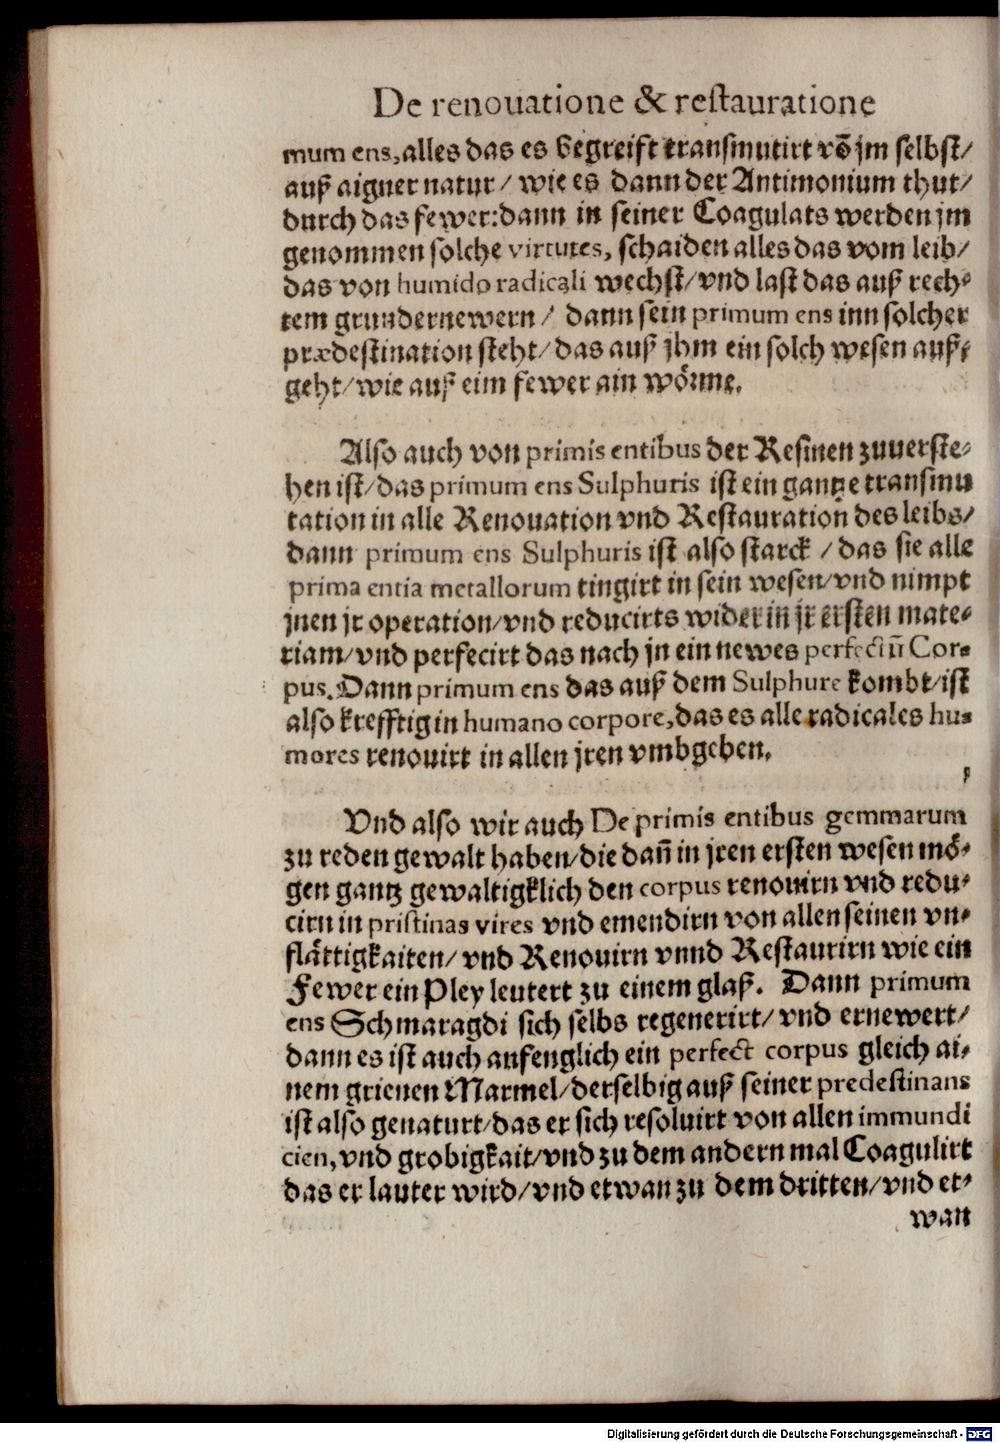 De renouatione & restauratione
mum ens, alles das es begreift transmutirt võ jm selbst/
auß aigner natur/ wie es dann der Antimonium thut/
durch das fewer: dann in seiner Coagulats werden jm
genommen solche virtutes, schaiden alles das vom leib/
das von humido radicali wechst/ vnd last das auß rech-
tem grund ernewern/ dann sein primum ens inn solcher
prædestination steht/ das auß jhm ein solch wesen auß-
geht/ wie auß eim fewer ain wörme.
Also auch von primis entibus der Resinen zuuerste-
hen ist/ das primum ens Sulphuris ist ein gantze transmu
tation in alle Renouation vnd Restauration des leibs/
dann primum ens Sulphuris ist also starck/ das sie alle
prima entia metallorum tingirt in sein wesen/ vnd nimpt
jnen jr operation/ vnd reducirts wider in jr ersten mate-
riam/ vnd perfecirt das nach jn ein newes perfectiũ Cor-
pus. Dann primum ens das auß dem Sulphure kombt/ ist
also krefftig in humano corpore, das es alle radicales hu-
mores renouirt in allen jren vmbgeben.
Vnd also wir auch De primis entibus gemmarum
zu reden gewalt haben/ die dañ in jren ersten wesen mö-
gen gantz gewaltigklich den corpus renouirn vnd redu-
cirn in pristinas vires vnd emendirn von allen seinen vn-
flättigkaiten/ vnd Renouirn vnnd Restaurirn wie ein
Fewer ein Pley leutert zu einem glaß. Dann primum
ens Schmaragdi sich selbs regenerirt/ vnd ernewert/
dann es ist auch anfenglich ein perfect corpus gleich ai-
nem grienen Marmel/ derselbig auß seiner predestinans
ist also genaturt/ das er sich resoluirt von allen immundi
cien, vnd grobigkait/ vnd zu dem andern mal Coagulirt
das er lauter wird/ vnd etwan zu dem dritten/ vnd et-
wan
Digitalisierung gefördert durch die Deutsche Forschungsgemeinschaft - DFG